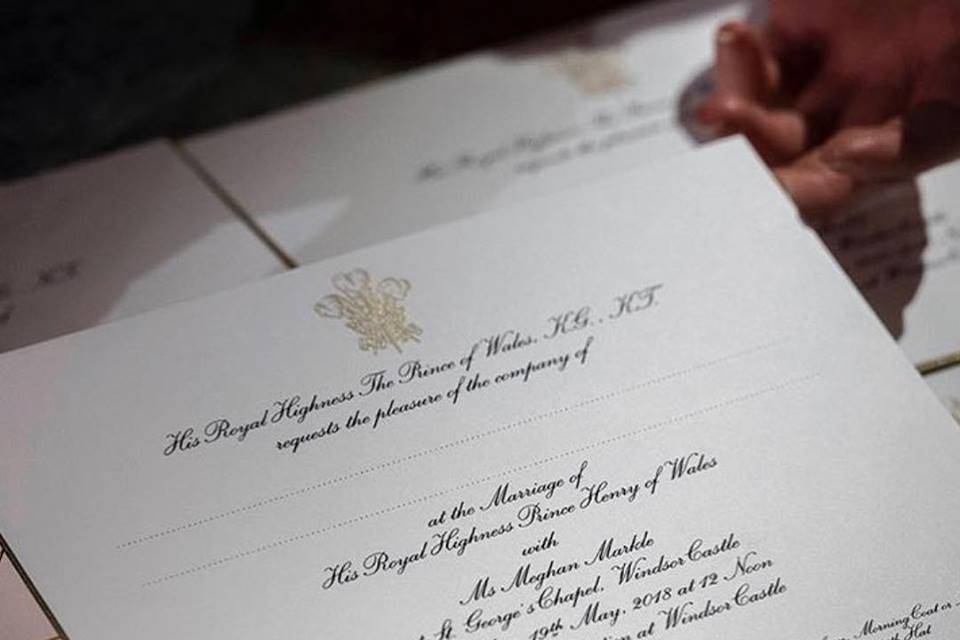 His Royal Highness The Prince of Wales, K.G., K.T.
requests the pleasure of the company of
at the Marriage of
His Royal Highness Prince Henry of Wales
with
Ms Meghan Markle
St. George's Chapel, Windsor Castle
19th May, 2018 at 12 Noon
at Windsor Castle
Morning Coat or
Hat